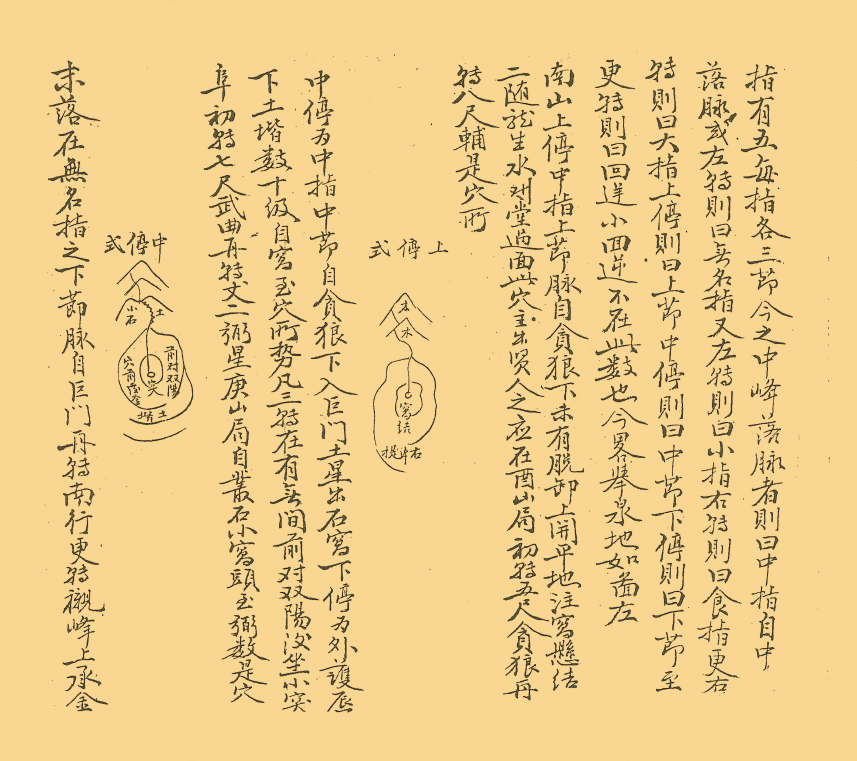 指有五每指各三節今之中峰落脉者則曰中指自中
落脉或左转則曰無名指又左转則曰小指右转則曰食指更右
转則曰大指上停則曰上節中停則曰中節下停則曰下節至
更转則曰回逆小面逆不在此数也今畧舉泉地如啚左
南山上停中指上節脉自貪狼下未有脱卸上開平地注窩懸结
二随龍生水对堂迫面此穴主出贤人之应在酉山局初转五尺貪狼再
转八尺輔是穴所
上停式
木
木
窩结
右砂提
中停为中指中節自貪狼下入巨门土星出石窩下停为外護唇
下土堦数十级自窩至穴所勢凡三转在有無间前对双陽後坐小突
阜初转七尺武曲再转丈二弼星庚山局自叢石小窩頭至弼数是穴
中停式
土
小石
前对双陽
突
穴前
土堦
末落在無名指之下節脉自巨门再转南行更转襯峰上承金